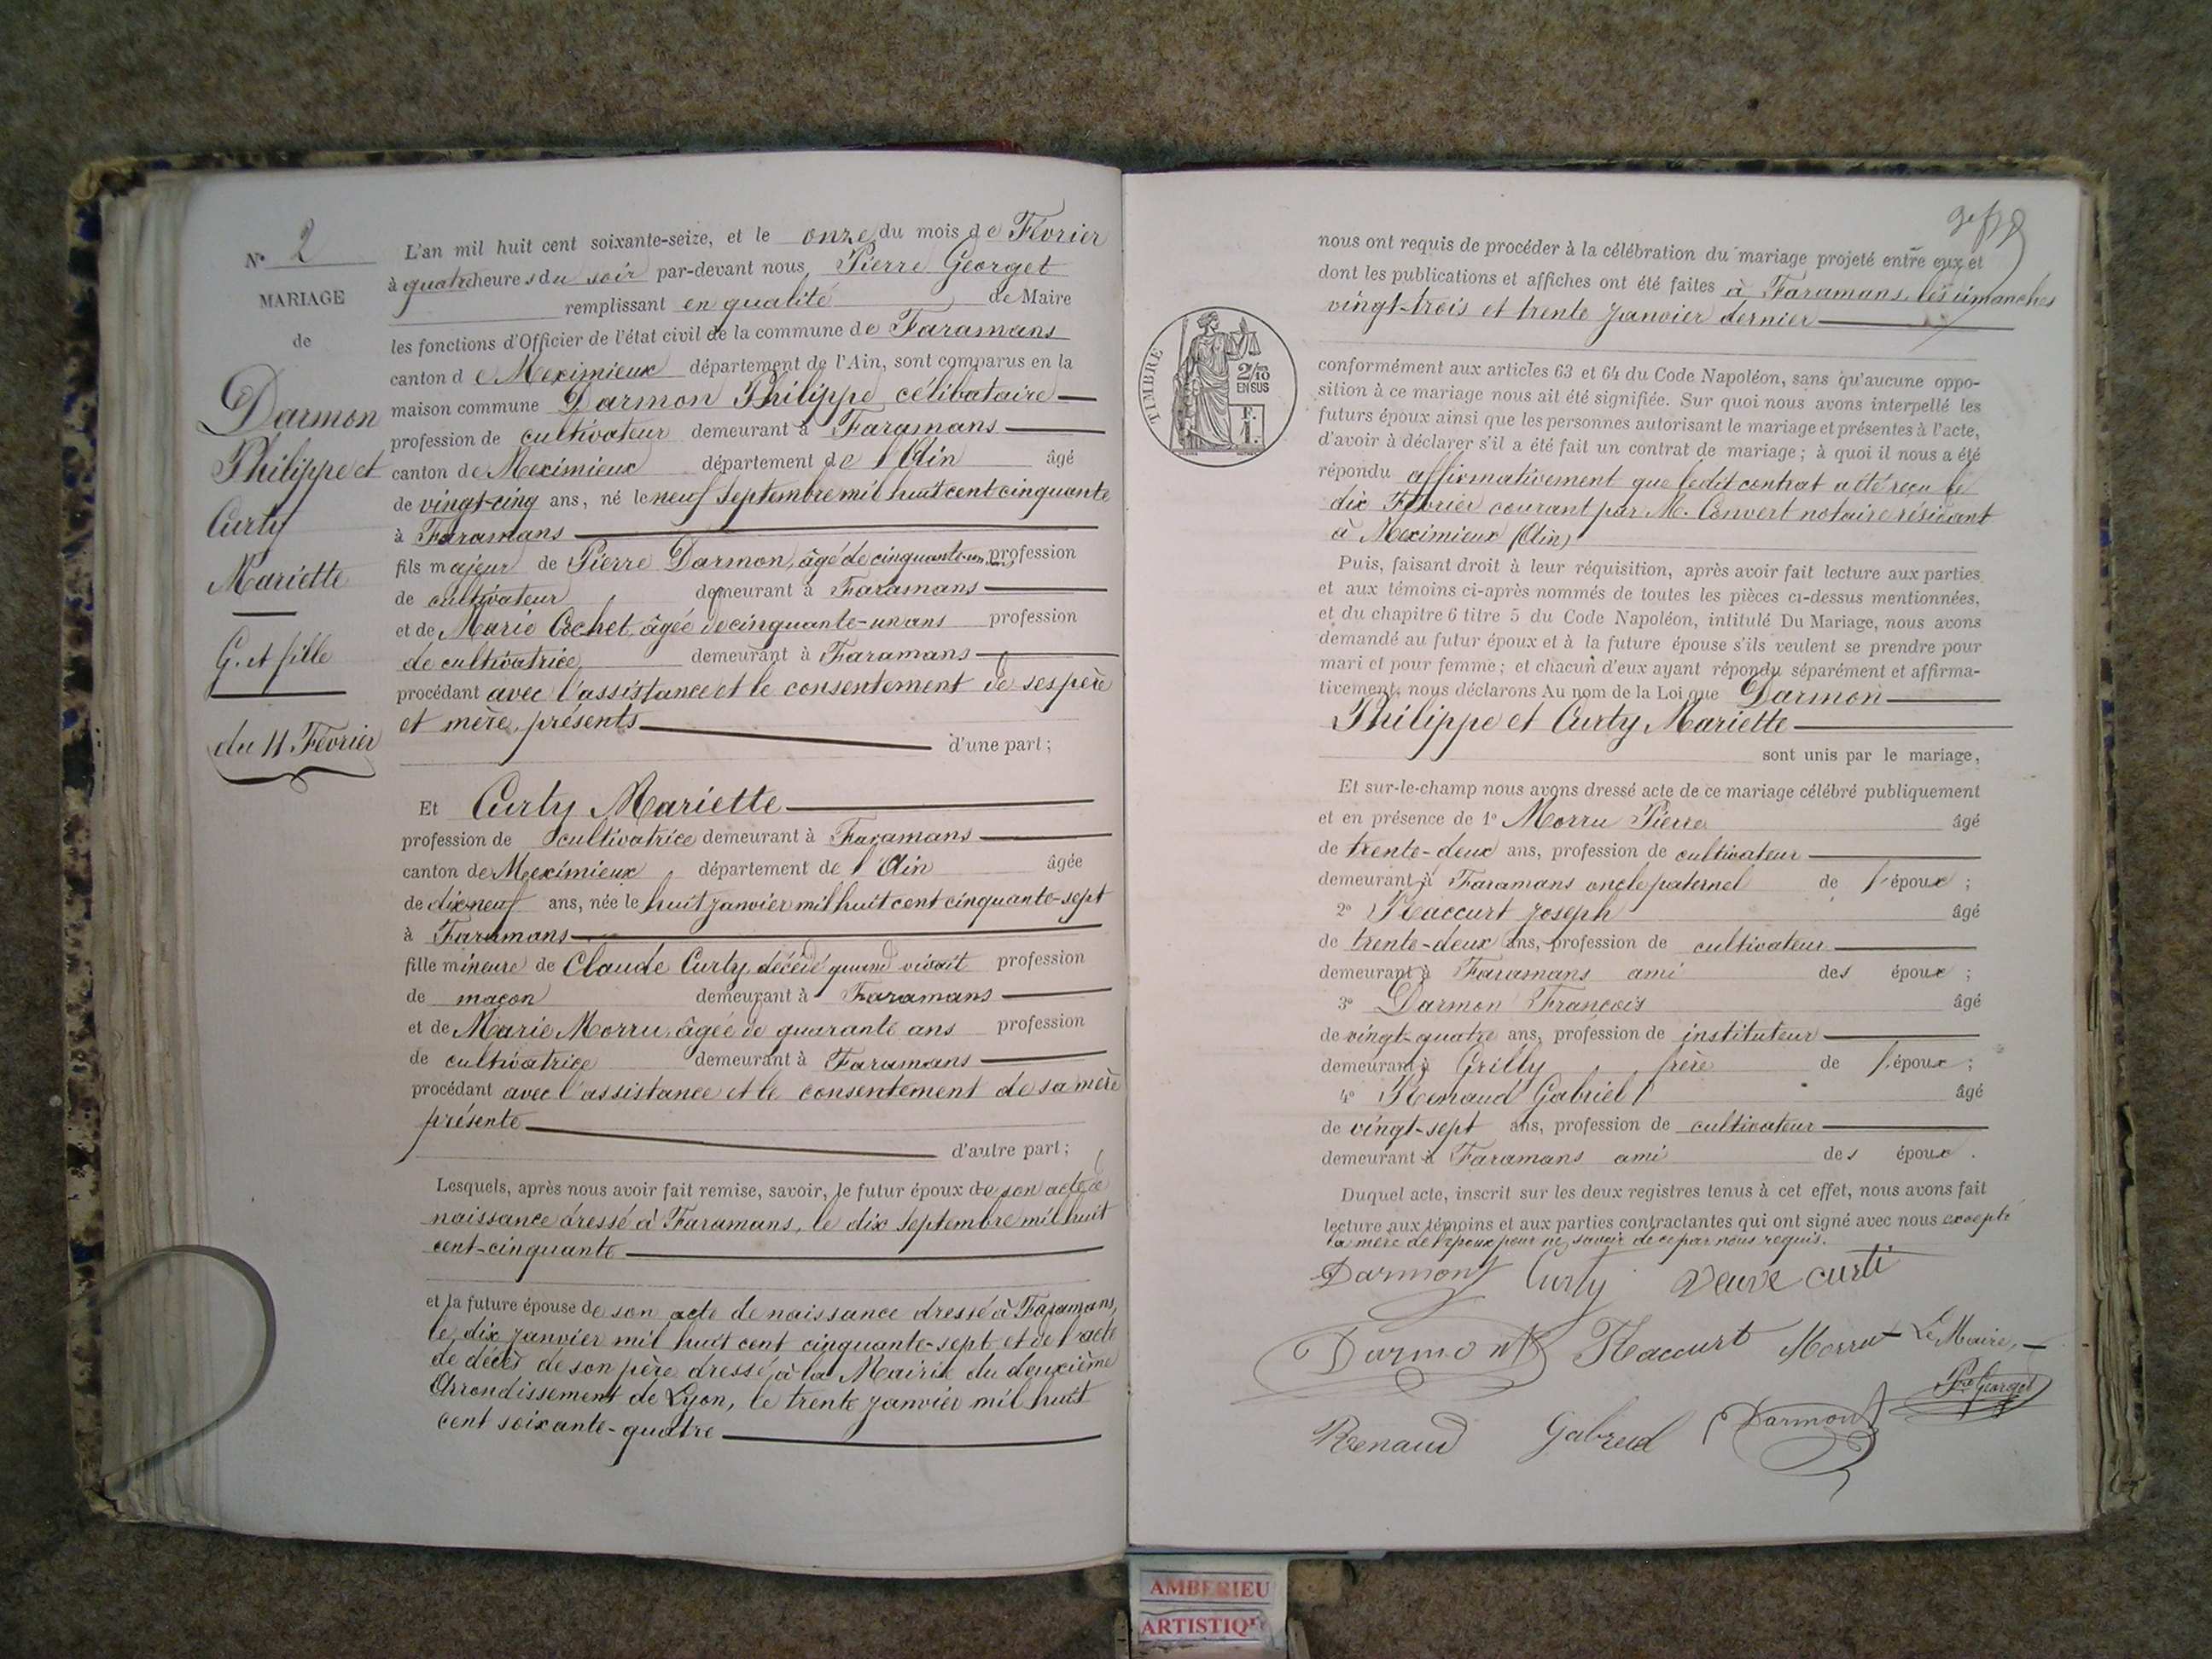 N° 2
MARIAGE
de
Darmon
Philippe et
Curty
Mariette
G. et fille
du 11 Février
L'an mil huit cent soixante-seize, et le onze du mois de Février
à quatre heures du soir par-devant nous, Pierre Georget
remplissant en qualité de Maire
les fonctions d'Officier de l'état civil de la commune de Faramans
canton de Meximieux département de l'Ain, sont comparus en la
maison commune Darmon Philippe, célibataire
profession de cultivateur demeurant à Faramans
canton de Meximieux département de l'Ain âgé
de vingt-cinq ans, né le neuf Septembre mil huit cent cinquante
à Faramans
fils majeur de Pierre Darmon, âgé de cinquante-un ans, profession
de cultivateur demeurant à Faramans
et de Marie Cochet, âgée de cinquante-un ans profession
de cultivatrice demeurant à Faramans
procédant avec l'assistance et le consentement de ses père
et mère, présents
d'une part ;
Et Curty Mariette
profession de cultivatrice demeurant à Faramans
canton de Meximieux département de l'Ain âgée
de dix-neuf ans, née le huit janvier mil huit cent cinquante-sept
à Faramans
fille mineure de Claude Curty, décédé quand vivait profession
de maçon demeurant à Faramans
et de Marie Morru, âgée de quarante ans profession
de cultivatrice demeurant à Faramans
procédant avec l'assistance et le consentement de sa mère
présente
d'autre part ;
Lesquels, après nous avoir fait remise, savoir, le futur époux de son acte de
naissance dressé à Faramans, le dix Septembre mil huit
cent-cinquante
et la future épouse de son acte de naissance dressé à Faramans,
le dix janvier mil huit cent cinquante-sept et de l'acte
de décès de son père dressé à la Mairie du deuxième
Arrondissement de Lyon, le trente janvier mil huit
cent soixante-quatre
nous ont requis de procéder à la célébration du mariage projeté entre eux et
dont les publications et affiches ont été faites à Faramans, les dimanches
vingt-trois et trente janvier dernier
TIMBRE
2/10
EN SUS
F.
1.
conformément aux articles 63 et 64 du Code Napoléon, sans qu'aucune oppo-
sition à ce mariage nous ait été signifiée. Sur quoi nous avons interpellé les
futurs époux ainsi que les personnes autorisant le mariage et présentes à l'acte,
d'avoir à déclarer s'il a été fait un contrat de mariage ; à quoi il nous a été
répondu affirmativement que ledit contrat a été reçu le
dix Février courant par M. Convert notaire résidant
à Meximieux (Ain)
Puis, faisant droit à leur réquisition, après avoir fait lecture aux parties
et aux témoins ci-après nommés de toutes les pièces ci-dessus mentionnées,
et du chapitre 6 titre 5 du Code Napoléon, intitulé Du Mariage, nous avons
demandé au futur époux et à la future épouse s'ils veulent se prendre pour
mari et pour femme ; et chacun d'eux ayant répondu séparément et affirma-
tivement, nous déclarons Au nom de la Loi que Darmon
Philippe et Curty Mariette
sont unis par le mariage,
Et sur-le-champ nous avons dressé acte de ce mariage célébré publiquement
et en présence de 1° Morru Pierre âgé
de trente-deux ans, profession de cultivateur
demeurant à Faramans oncle paternel de l'époux ;
2° Raccurt Joseph âgé
de trente-deux ans, profession de cultivateur
demeurant à Faramans ami des époux ;
3° Darmon François âgé
de vingt-quatre ans, profession de instituteur
demeurant à Grilly frère de l'époux ;
4° Renaud Gabriel âgé
de vingt-sept ans, profession de cultivateur
demeurant à Faramans ami des époux .
Duquel acte, inscrit sur les deux registres tenus à cet effet, nous avons fait
lecture aux témoins et aux parties contractantes qui ont signé avec nous excepté
la mère de l'époux pour ne savoir de ce par nous requis.
Darmont Curty veuve curti
Darmont Raccurt Morru Le Maire,
Pre Georget
Renaud Gabriel Darmont
AMBERIEU
ARTISTIQ